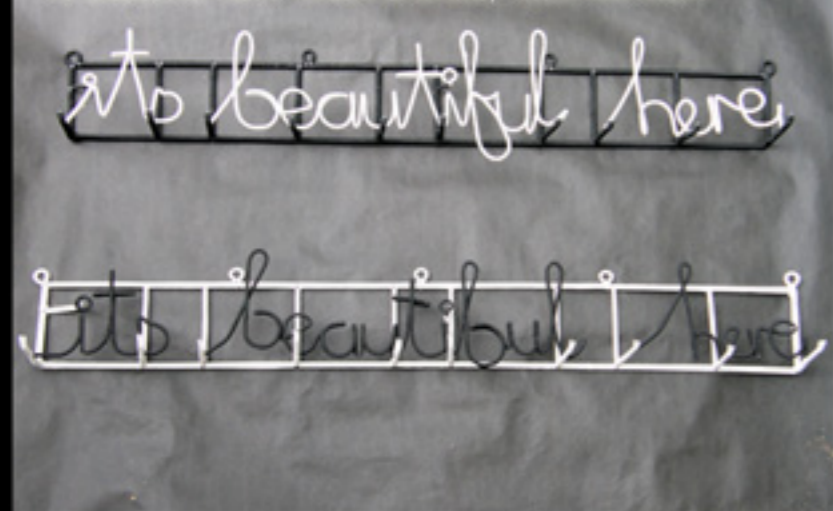 its beautiful here
its beautiful here